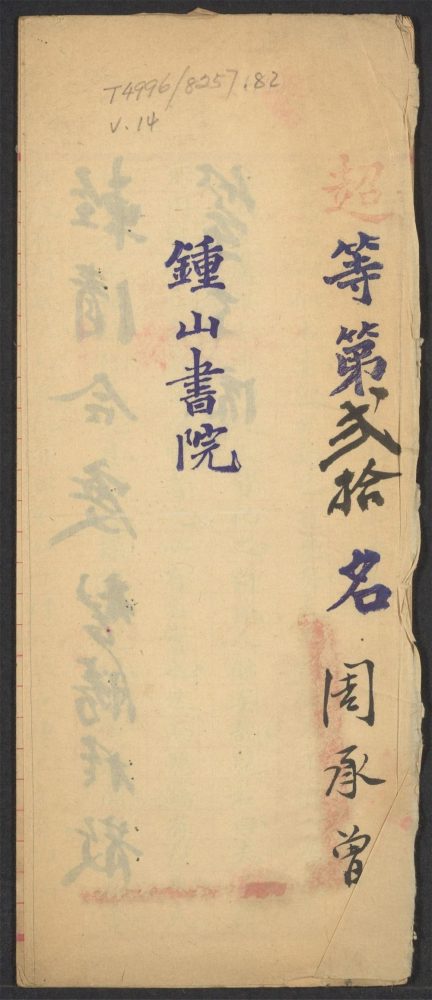 T4996/8257.82
v.14
超等第貳拾名周承曾
鍾山書院